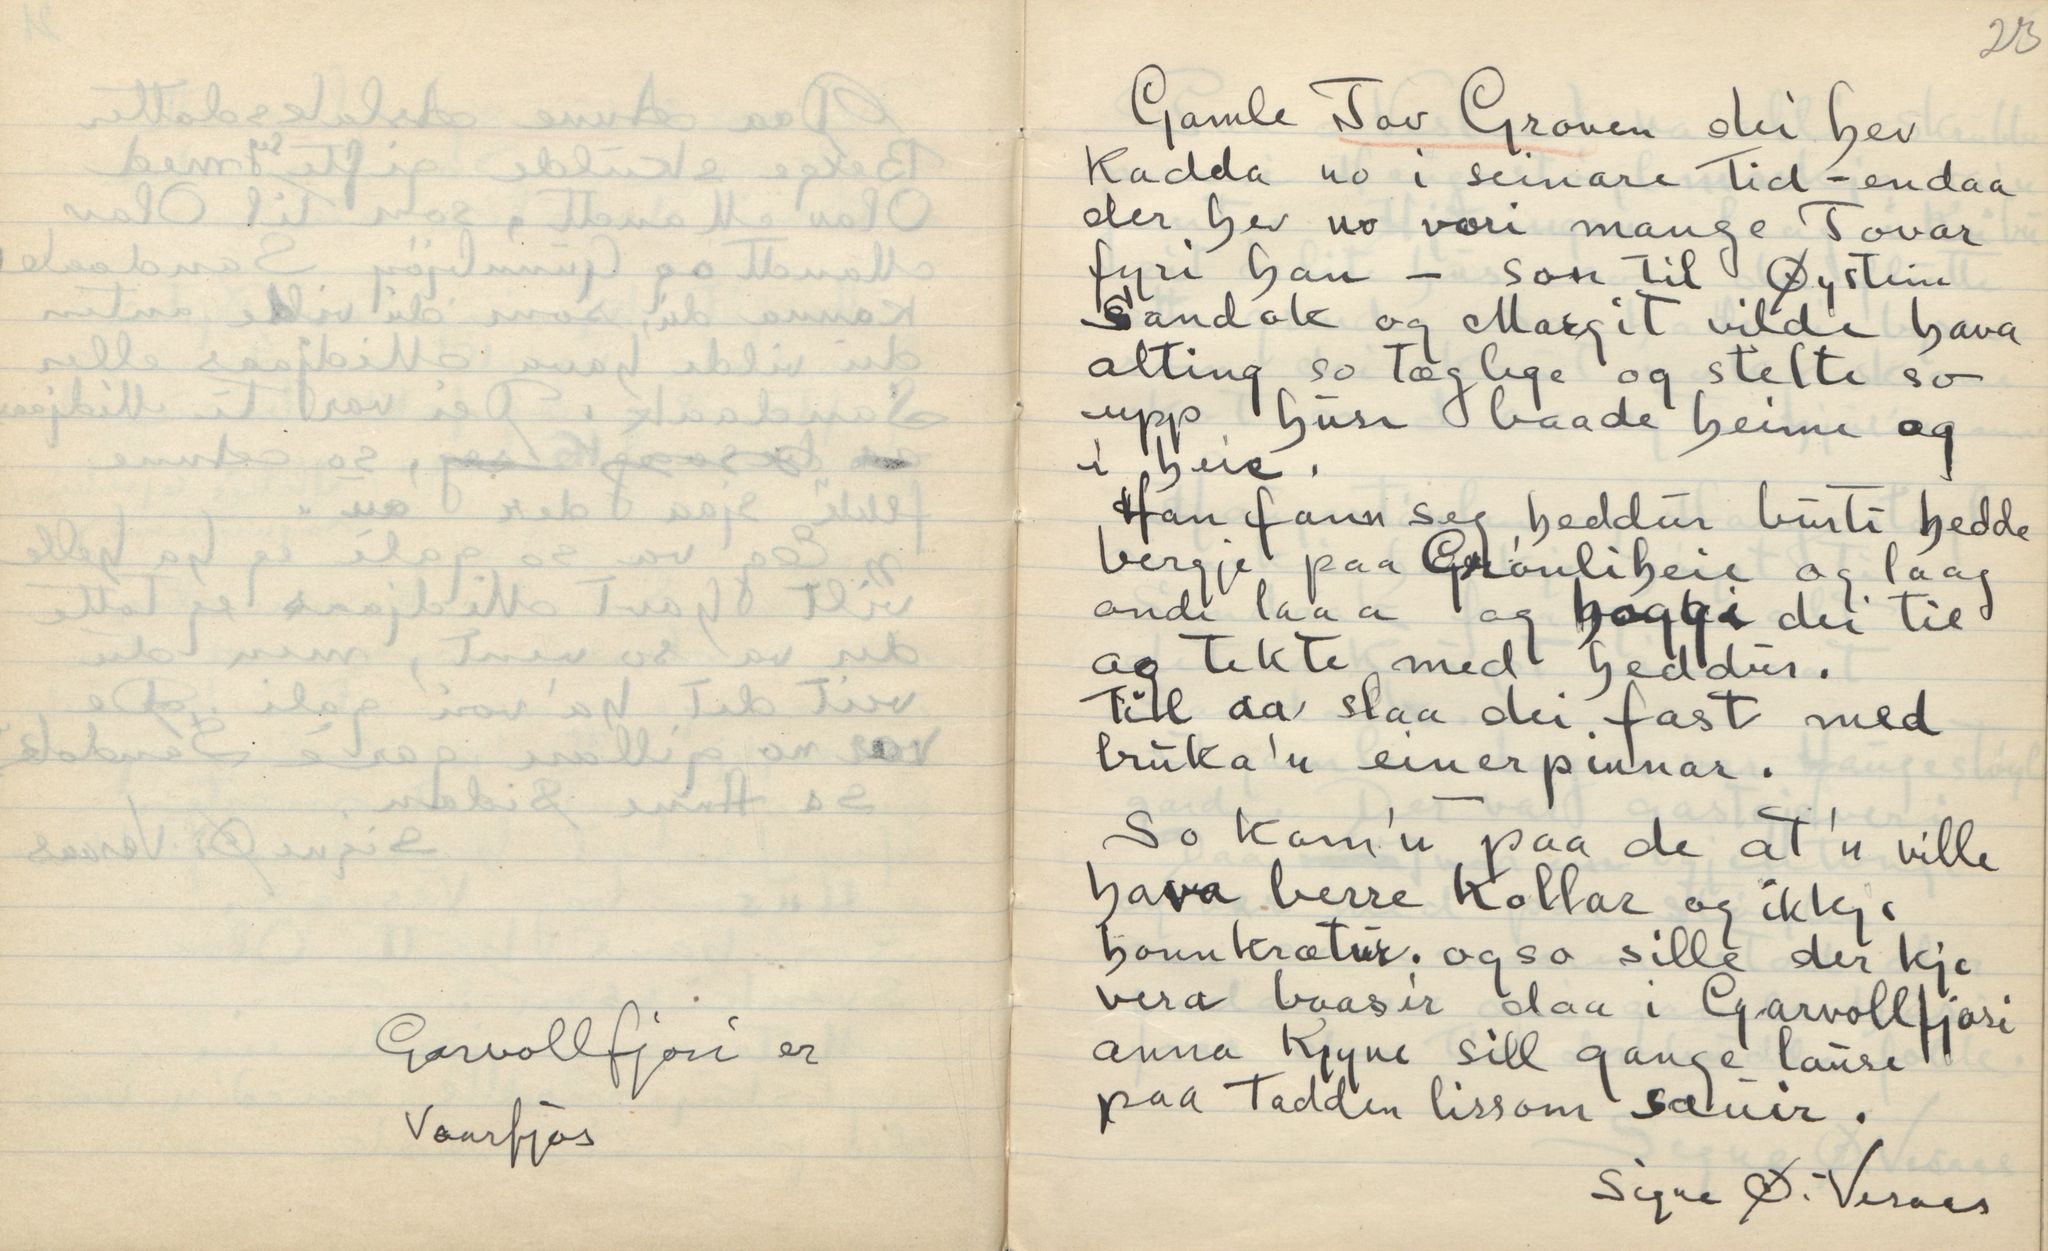 Garvollfjosi er
Vaarfjos
23
Gamle Tov Groven dei hev
kadda no i seinare tid - endaa
der hev no vori mange Tovar
fyri han - son til Øystein
Sandok og Margit vilde hava
alting so tæglege og stelte so
upp husi baade heime og
i heie.
Han fann seg heddur burti hedde
bergje paa Grønliheie og laag
ande laaa og hoggi dei til
og tekte med heddur.
Till aa slaa dei fast med
bruka'n einerpinnar.
So kom'n paa de at'n ville
hava berre kollar og ikkje
honnkrætur. ogso sille der kje
vera baasir daa i Garvollfjosi
anna Kjyne sill gange lause
paa tadden lissom sauir.
Signe Ø. Veraas